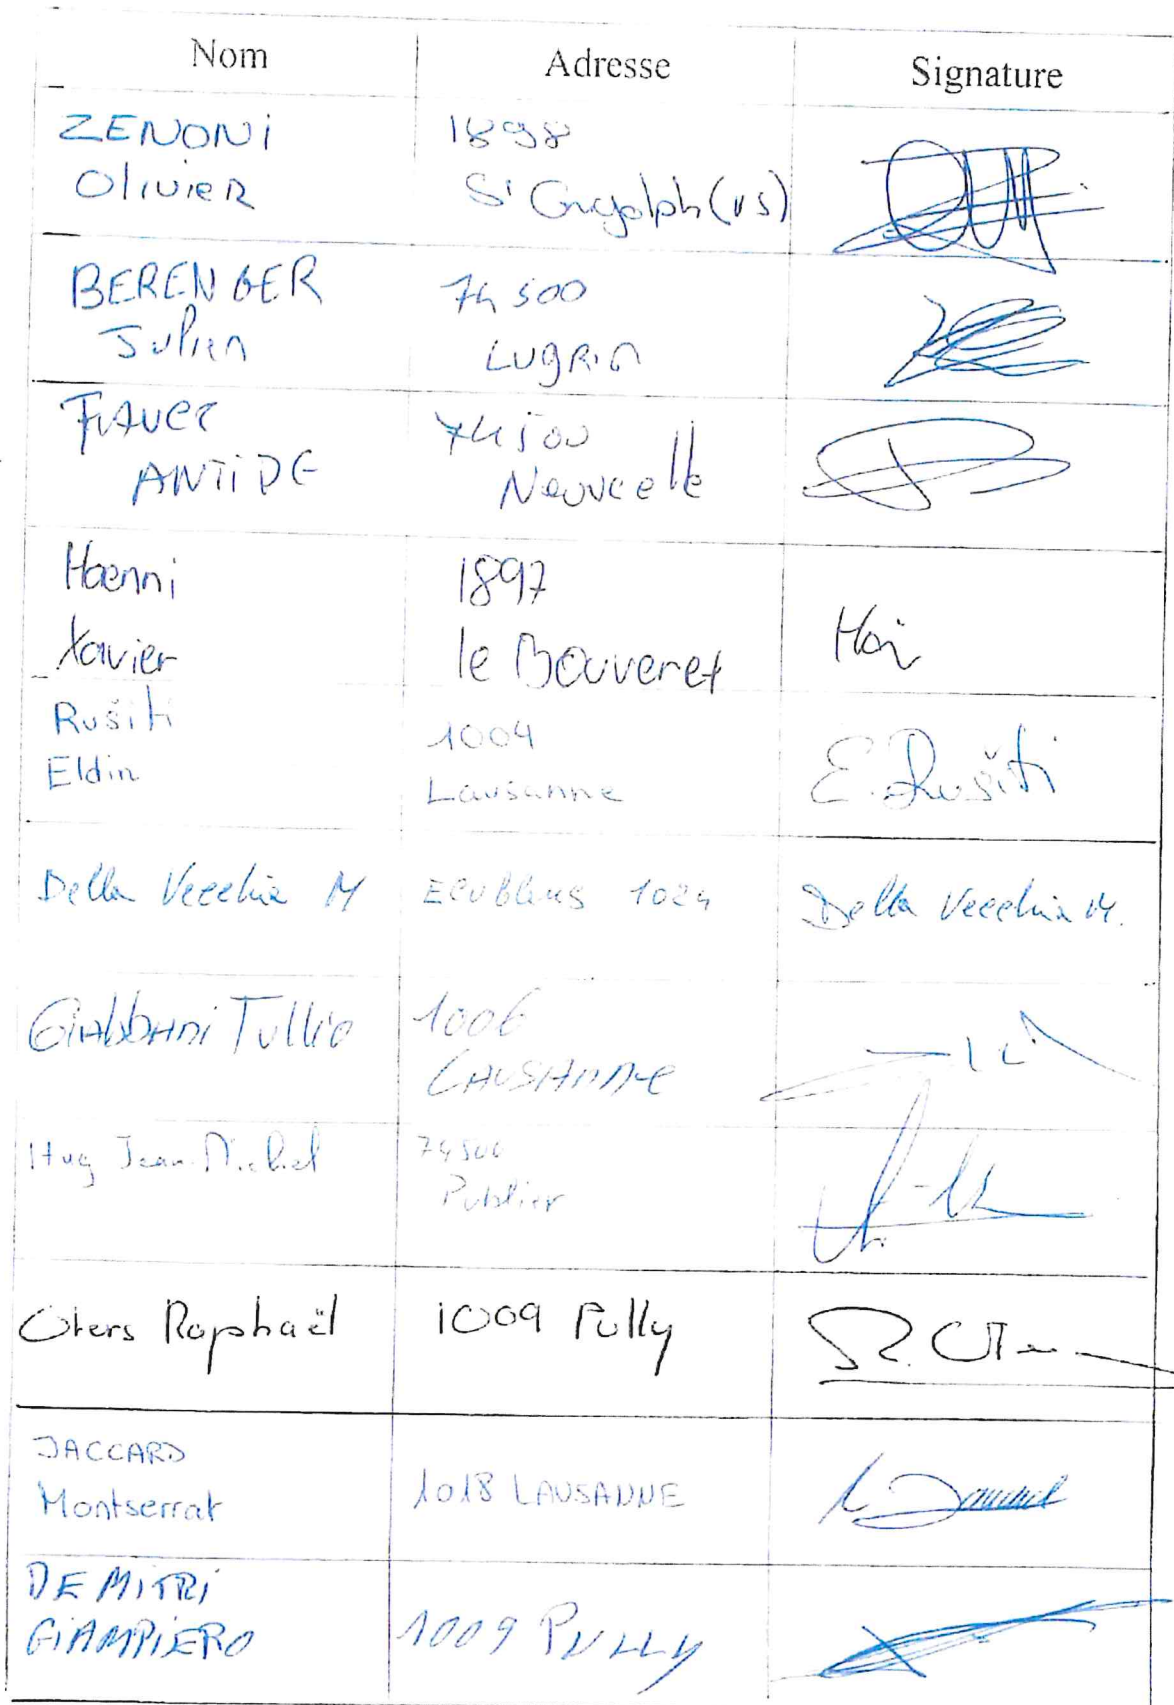 Nom Adresse Signature
ZENONI 1898
Olivier St Gingolph (VS)
BERENGER 74500
Julien Lugrin
74500
ANTIDE Neuvecelle
Haenni 1897
Xavier le Bouveret
Rušiti 1004
Eldin Lausanne
E. Rušiti
Della Vecchia M Ecublens 1024 Della Vecchia M.
Giabbani Tullio 1006
Lausanne
Hug Jean-Michel 74500
Publier
Oters Raphaël 1009 Pully
JACCARD
Montserrat 1018 LAUSANNE
DEMITRI
GIAMPIERO 1009 PULLY